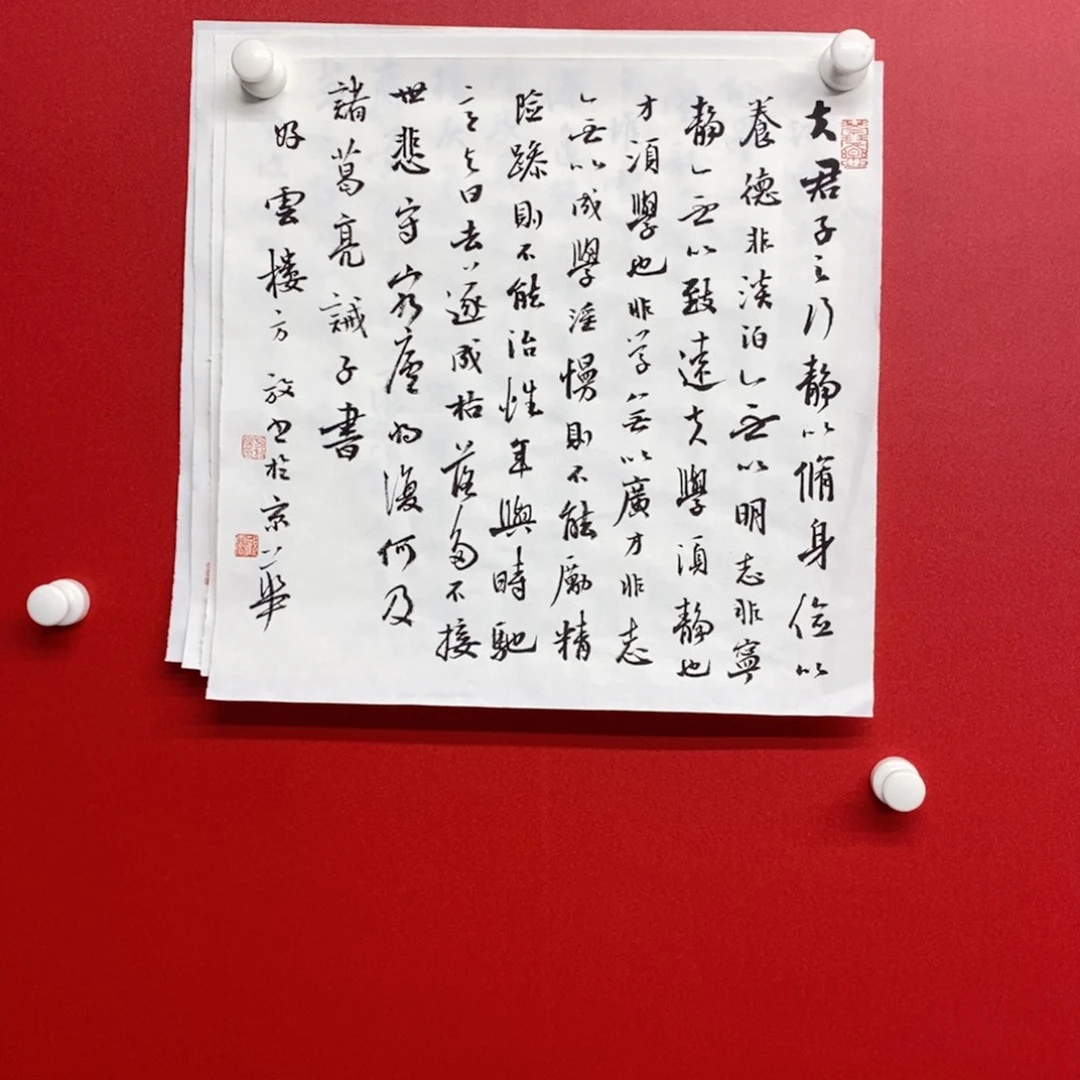 夫君子之行静以脩身俭以
養德非淡泊无以明志非寧
静无以致遠夫學須静也
才須學也非学無以廣才非志
無以成學淫慢則不能勵精
险躁則不能治性年與時馳
意与日去遂成枯落多不接
世悲守窮廬将復何及
諸葛亮誡子書
好雲樓方放书於京華